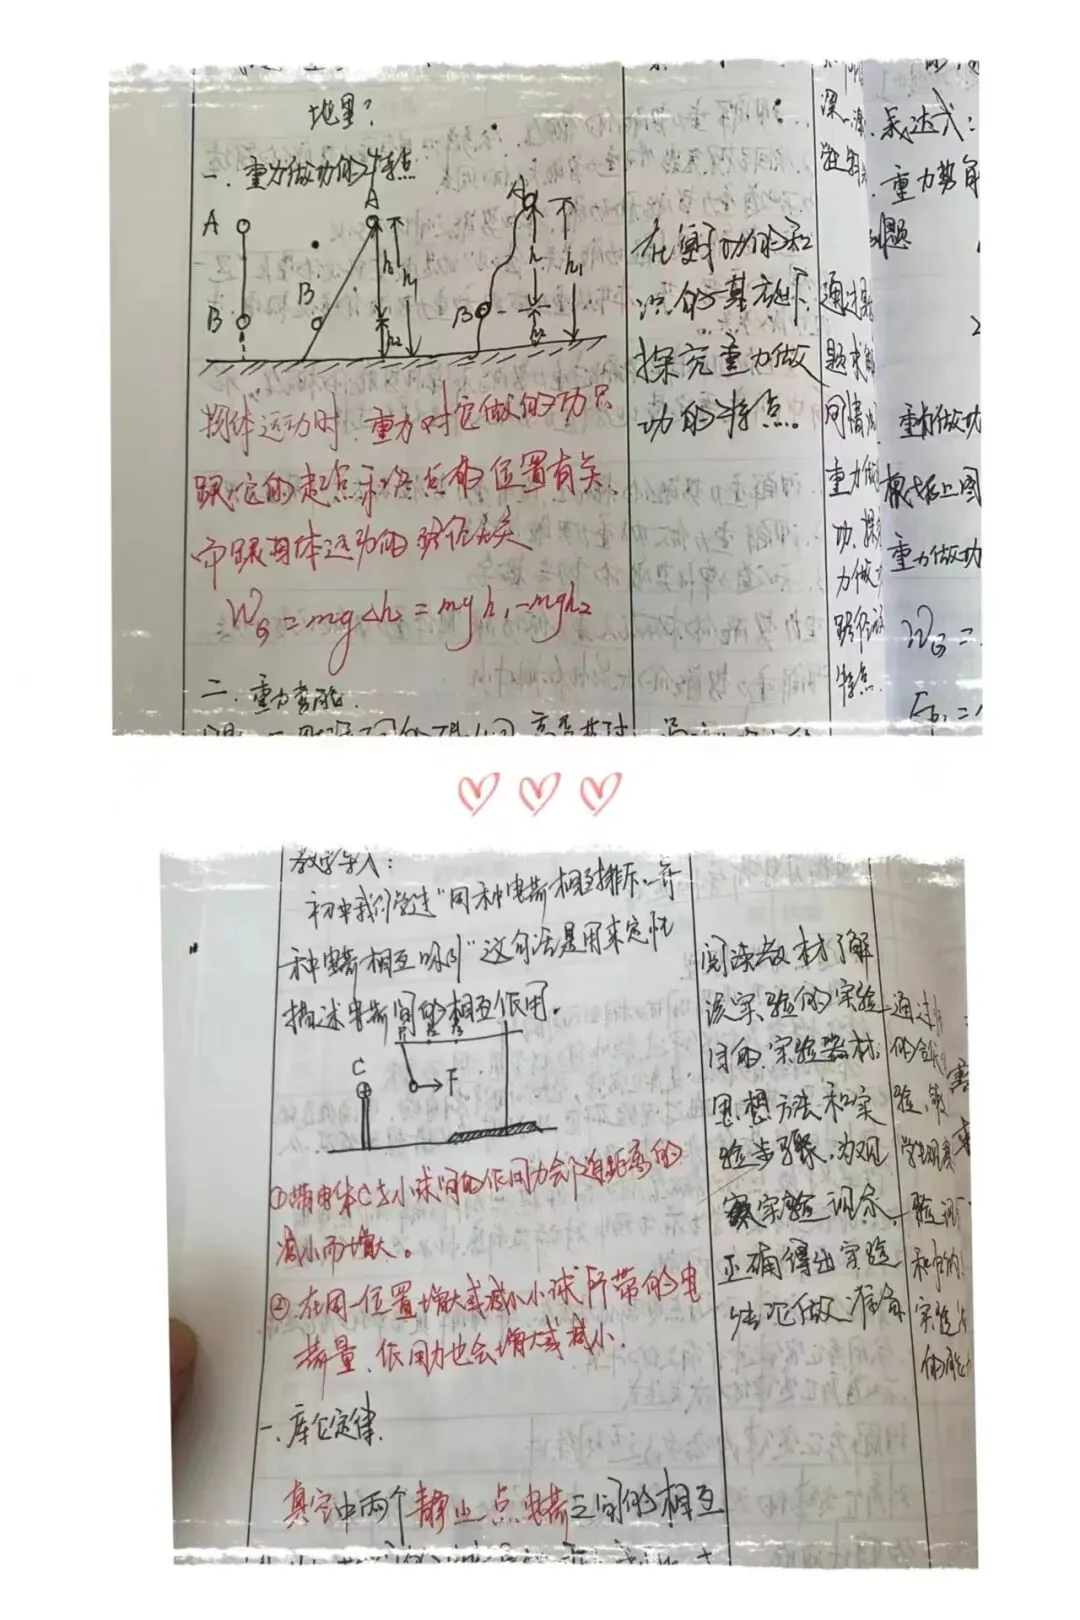 地里?
一. 重力做功的特点
A
A
A
B
B
B
h
h₁
h₂
h
h₁
h₂
物体运动时,重力对它做的功只
跟它的起点和终点的位置有关,
而跟物体运动的路径无关
W_G = mgΔh = mgh₁-mgh₂
二. 重力势能.
识的基础下.
探究重力做
功的特点。
深
通过
题求解
同情况
重力做
功,探
力做
路径
特点.
表达式:
重力势能
问题
重力做功
根据上图
重力做功
W_G =
教学导入:
初中我们学过“同种电荷相互排斥,异
种电荷相互吸引”这句话是用来定性
描述电荷间的相互作用.
C
F
①带电体C与小球间的作用力会随距离的
减小而增大。
②在同一位置增大或减小小球所带的电
荷量,作用力也会增大或减小.
一.库仑定律.
真空中两个静止点电荷之间的相互
阅读教材了解
该实验的实验
目的.实验器材.
思想方法和实
验步骤.为观
察实验现象.
正确得出实验
结论做准备
通过
的
验,
和
实验
的能力